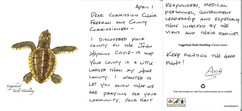 April 1
Dear Commission Chair
Person and County
Commissioners -
I discovered your
county on the John
Hopkins Covid-19 map
your county is a little
larger than my home
county. I wanted to
let you know that we
are praying for your
community, your first
responders, medical
personnel, government
leadership and everyone
that infected by the
virus and their families
Loggerhead Turtle Hatchling
Keep fighting the good
fight!